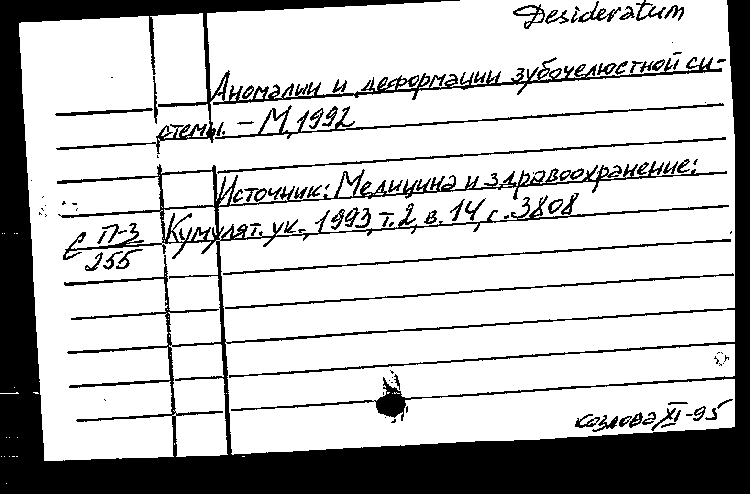 Desideratum
Аномалии и деформации зубочелюстной си-
стемы. – М, 1992
Источник: Медицина и здравоохранение:
Кумулят. ук., 1993, т. 2, в. 14, с. 3808
с П-3
255
Козлова XI-95